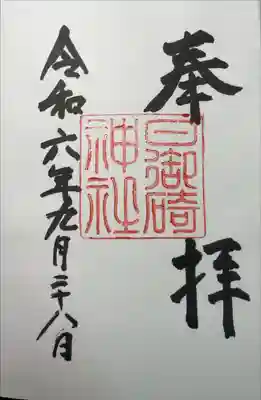 奉拝
日御碕
神社
令和六年九月二十八日